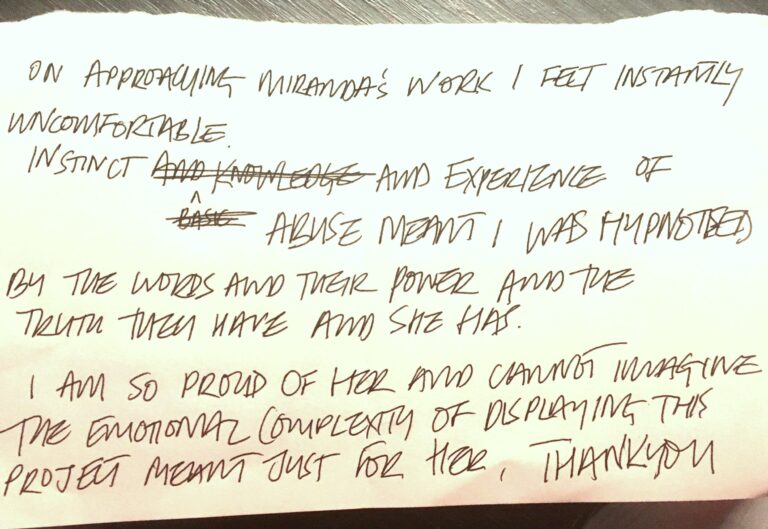 ON APPROACHING MIRANDA'S WORK I FELT INSTANTLY
UNCOMFORTABLE.
INSTINCT AND KNOWLEDGE AND EXPERIENCE OF
BASIC ABUSE MEANT I WAS HYPNOTISED
BY THE WORDS AND THEIR POWER AND THE
TRUTH THEY HAVE AND SHE HAS.
I AM SO PROUD OF HER AND CANNOT IMAGINE
THE EMOTIONAL COMPLEXITY OF DISPLAYING THIS
PROJECT MEANT JUST FOR HER, THANKYOU